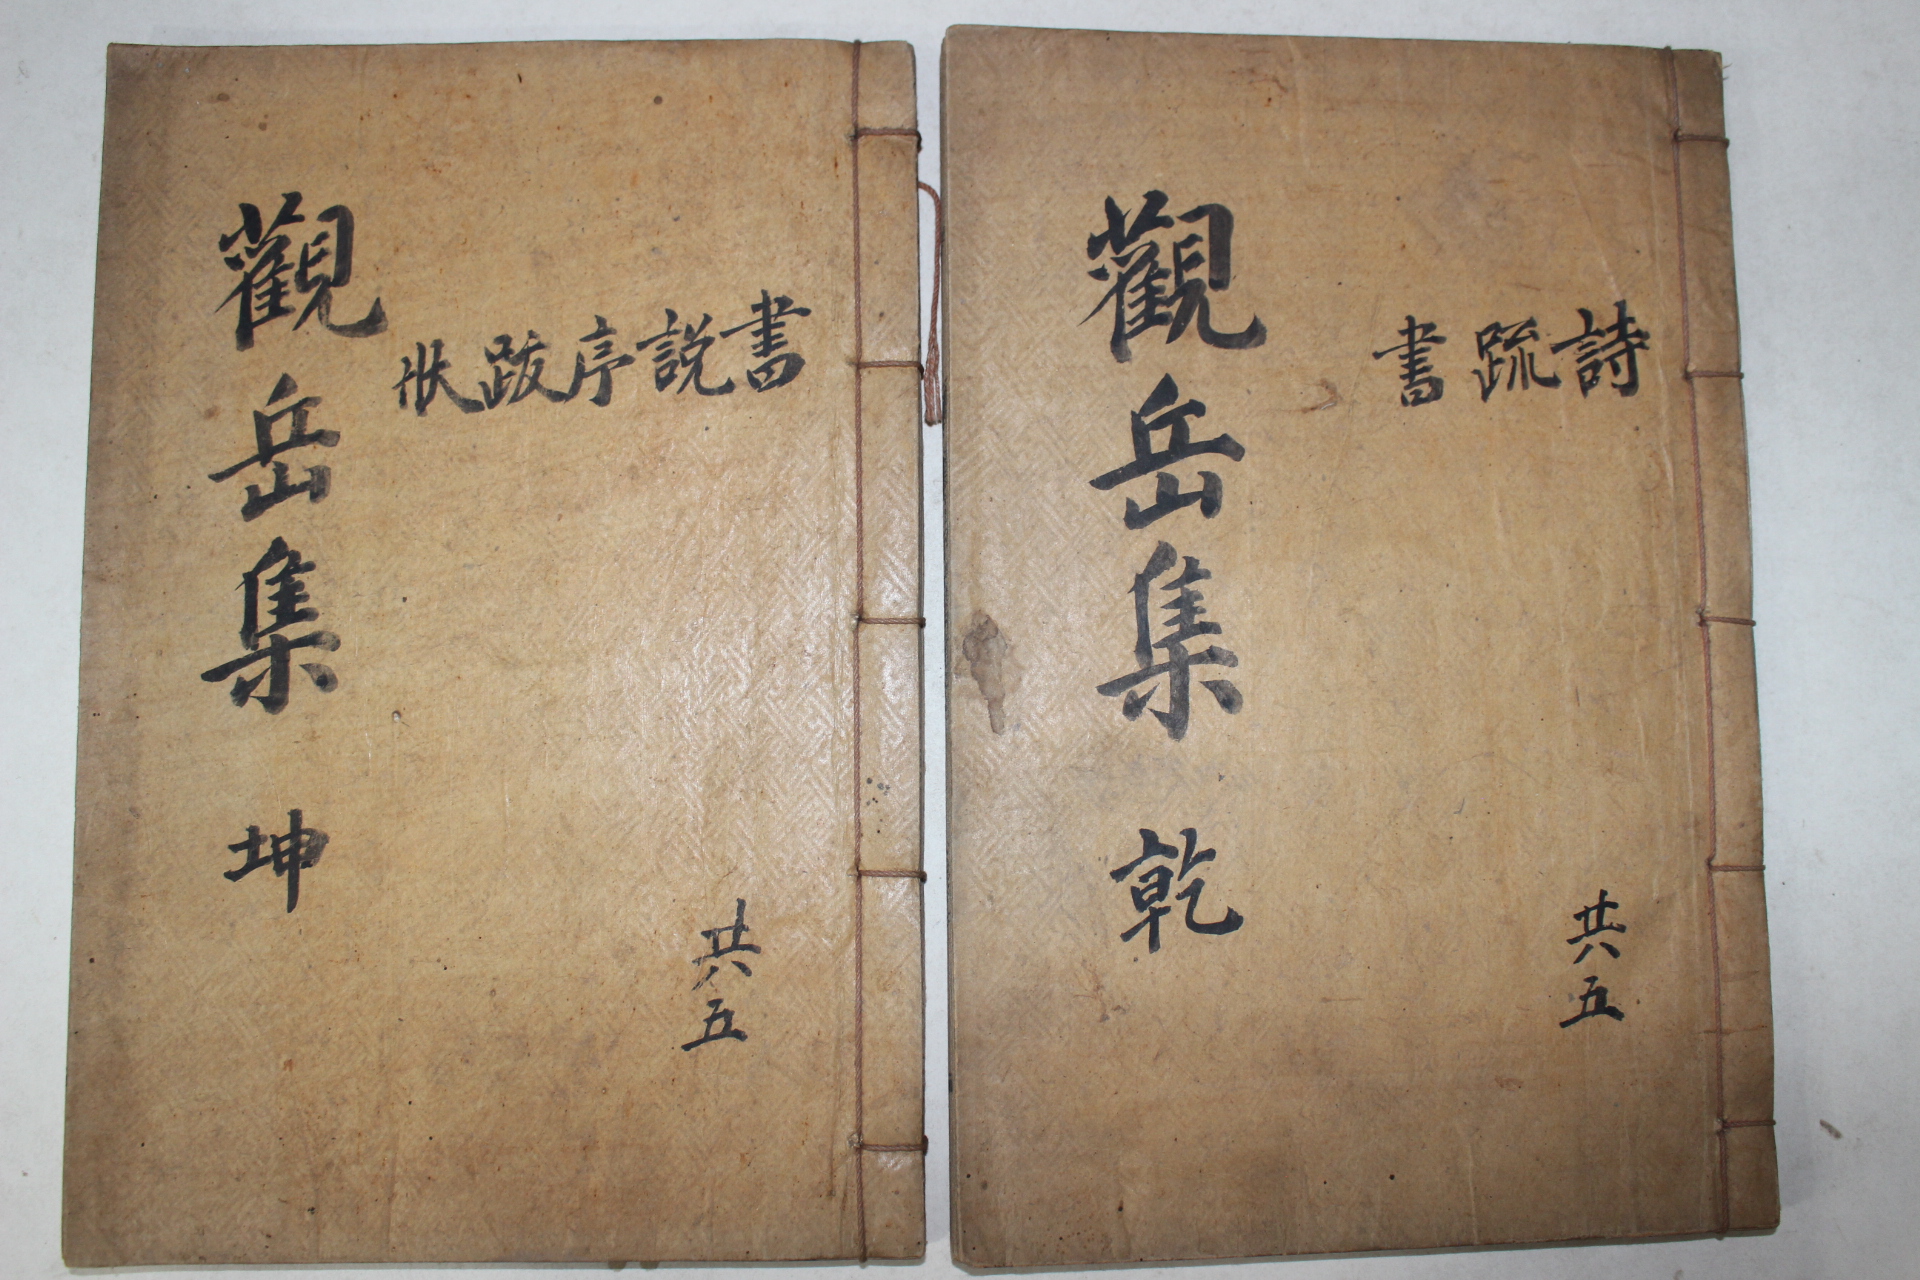 詩疏書
觀岳集 乾
共五
書說序跋狀
觀岳集 坤
共五